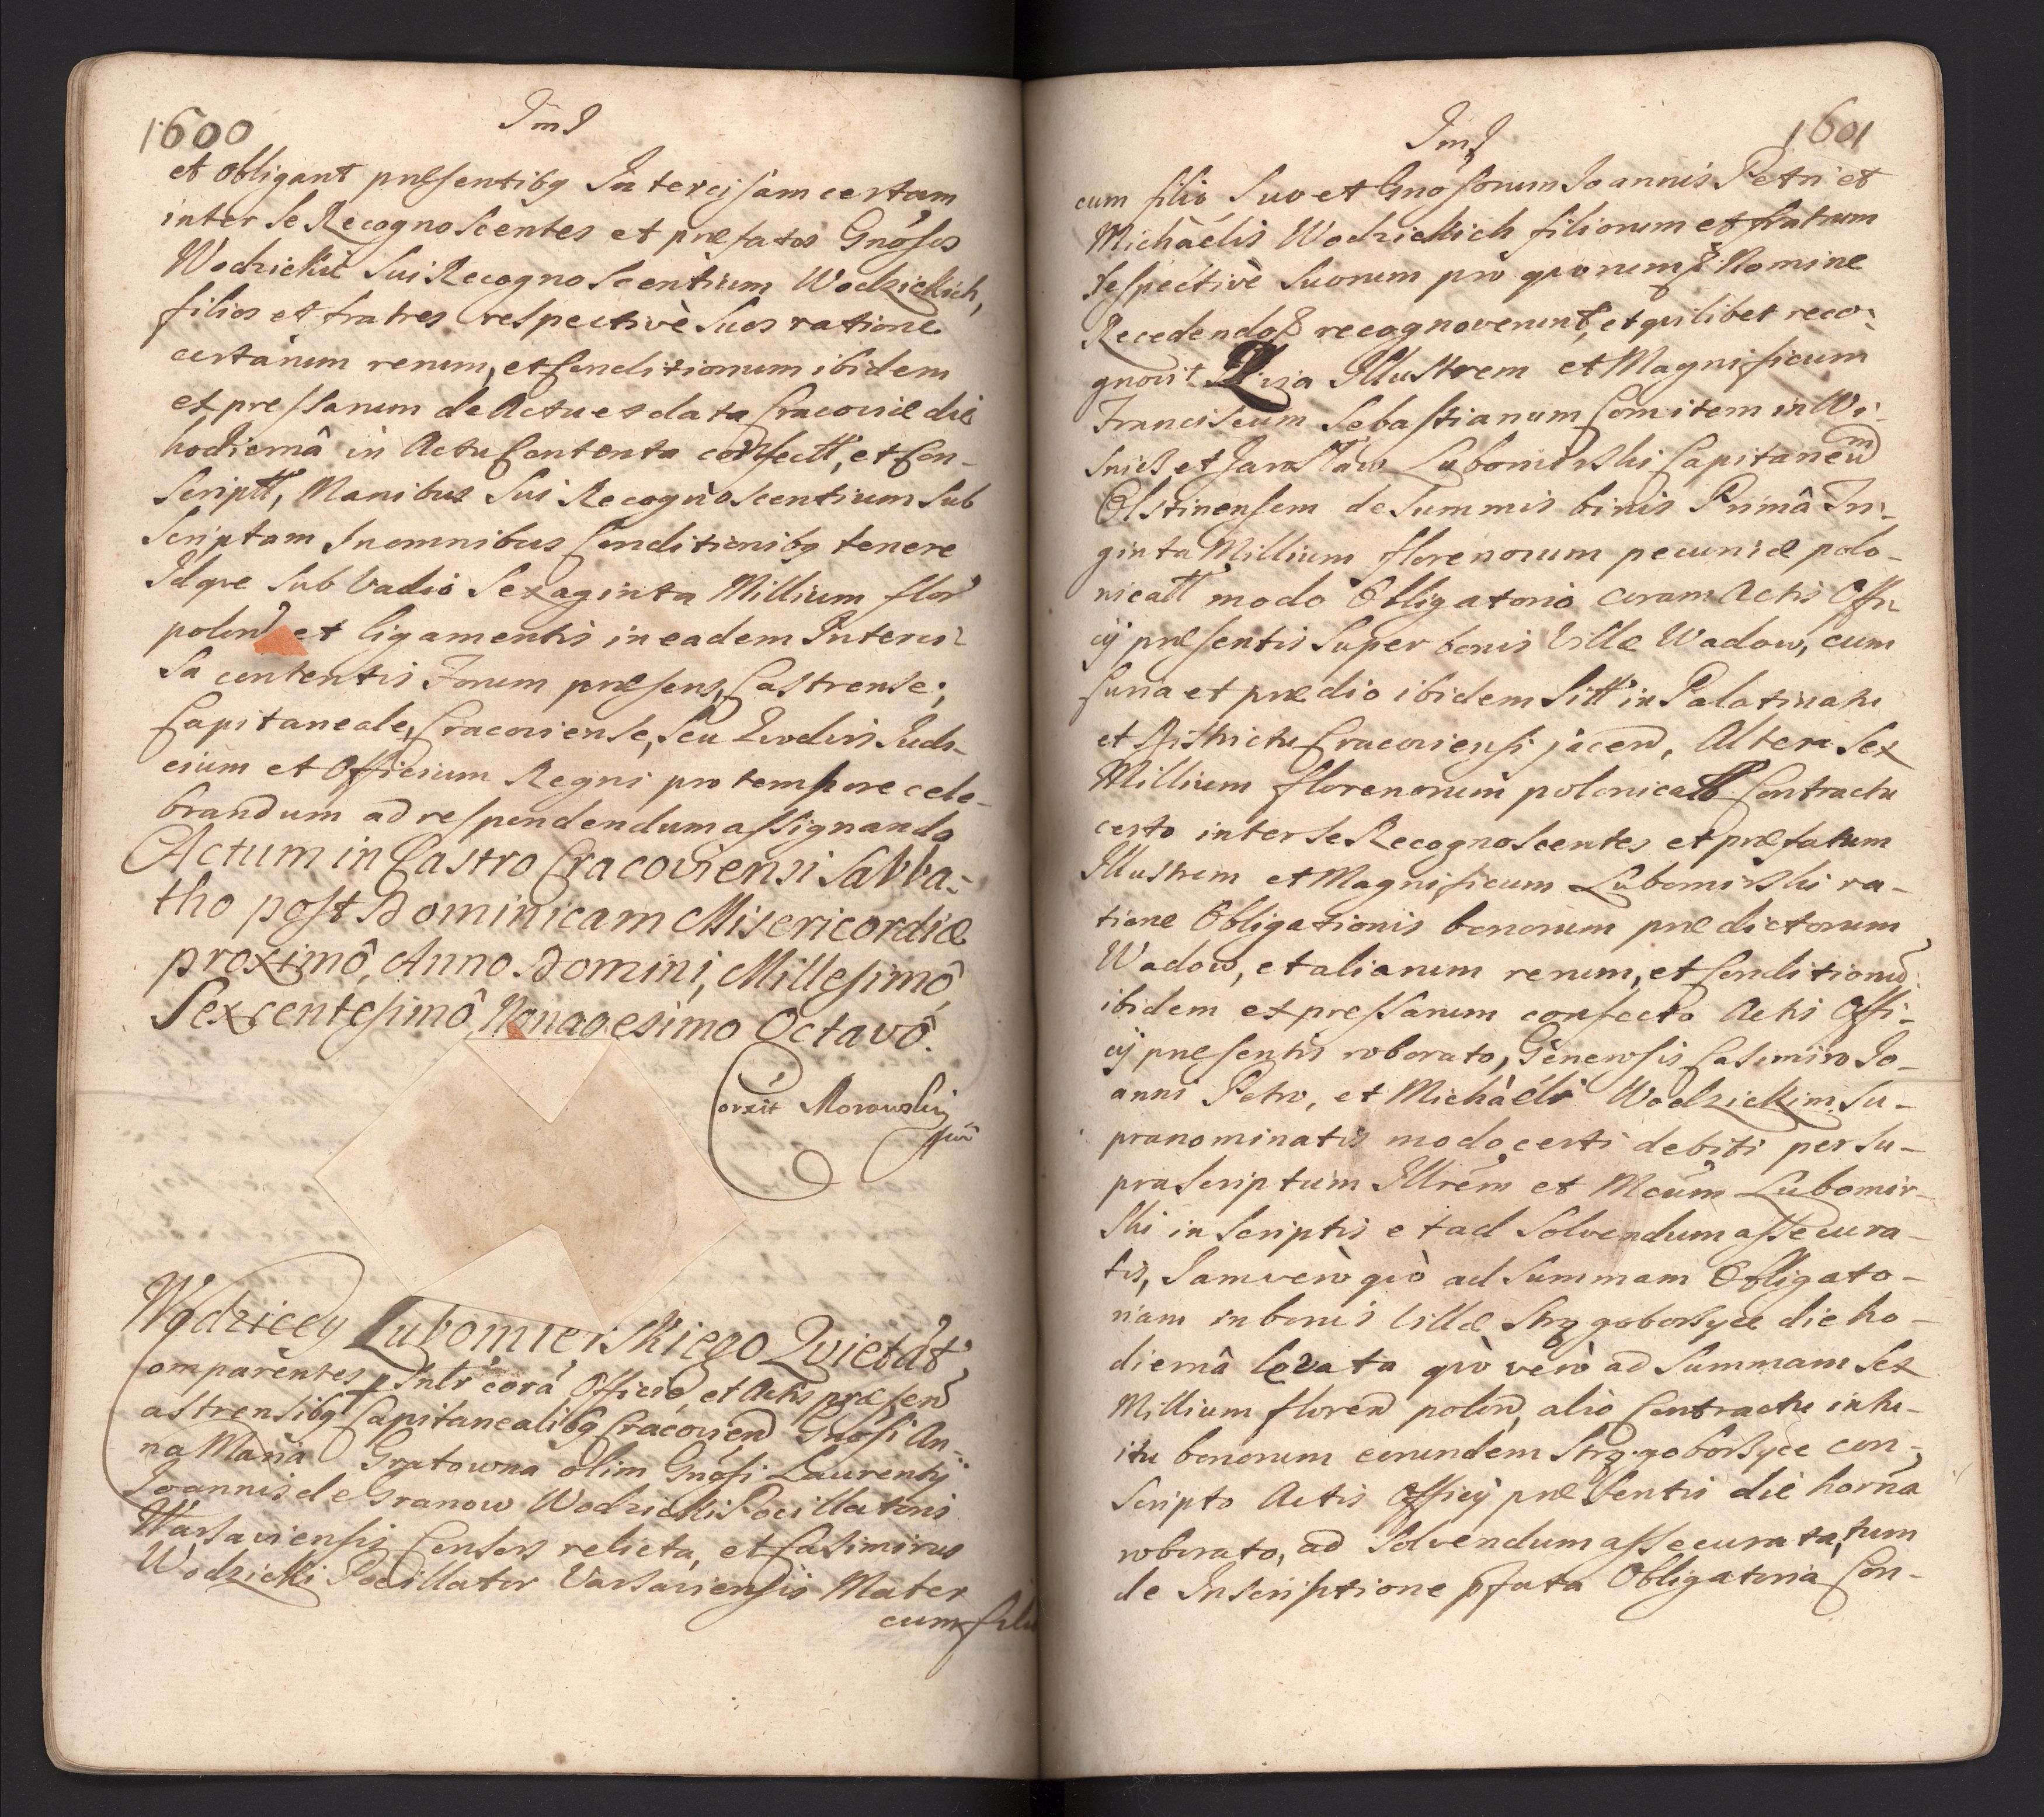 1600
Ind
et obligant præsentibq Intercisam certam
inter se Recognoscentes et præfatos Gnosos
Wodzickie sui Recognoscentium Wodzickich,
filios et fratres respectivè suos ratione
certarum rerum, et Conditionum ibidem
expressarum de Actu et data Cracoviæ die
hodiernâ in Actu Contenta confectt, et Con-
scriptt, Manibus sui Recognoscentium sub
scriptam In omnibus Conditionibq tenere
Idque sub Vadio Sexaginta Millium flor
polon et ligamentis in eadem Interci-
sa contentis Forum præsens, Castrense,
Capitaneale, Cracoviense, seu Quodvis Judi-
cium et Officium Regni pro tempore cele-
brandum ad respondendum assignando
Actum in Castro Cracoviensi Sabba-
tho post Dominicam Misericordiæ
proximô, Anno Domini, Millesimô
Sexcentesimô Nonagesimo Octavô.
Corxit Morowski
Wodziccy Lubomierskiego Quietât
Comparentes psnlr corâ Officio, et Actis præsen
Castrensibq Capitanealibq Cracovien Gnosi An-
na Maria Gratowna olim Gnosi Laurentij
Joannis de Granow Wodzicki Pocillatoris
Warsaviensis Consors relicta, et Casimirus
Wodzicki Pocillator Varsaviensis Mater
cum filio
Ind
1601
cum filio suo et Gnosorum Joannis Petri et
Michâelis Wodzickich filiorum et fratrum
respectivè suorum pro quorum Nomine
Recedendo recognoverunt, et quilibet reco-
gnovit Quia Illustrem et Magnificum
Franciscum Sebastianum Comitem in Wi-
snicz et Jarosław Lubomirski Capitaneum
Olstinensem de Summis binis Primâ Tri-
ginta Millium florenorum pecuniæ polo-
nicatt modo Obligatorio coram Actis Offi
cij præsentis super bonis Villæ Wadow, cum
Curia et prædio ibidem sitt in Palatinatu
et Districtu Cracoviensi jacen, Altera Sex
Millium florenorum polonicatt Contractu
certo inter se Recognoscentes et præfatum
Illustrem et Magnificum Lubomirski ra-
tione Obligationis bonorum prædictorum
Wadow, et aliarum rerum, et Conditionu
ibidem expressarum confecto Actis Offi-
cij præsentis roborato, Generosis Casimiro Jo-
anni Petro, et Michâeli Wodzickim Su-
pranominatis modo certi debiti per su-
prascriptum Illrem et Mcum Lubomir-
ski inscriptis et ad solvendum assecura-
tis, Jam verò quò ad Summam Obligato-
riam in bonis Villæ Strzgoborzyce die ho-
diernâ levata quò verò ad Summam Sex
Millium floren polon, aliò Contractu intu-
itu bonorum eorundem Strzgoborzyce con-
scripto Actis Officij præsentis die horna
roborato, ad solvendum assecurata, tum
de Inscriptione pfata Obligatoria Con-